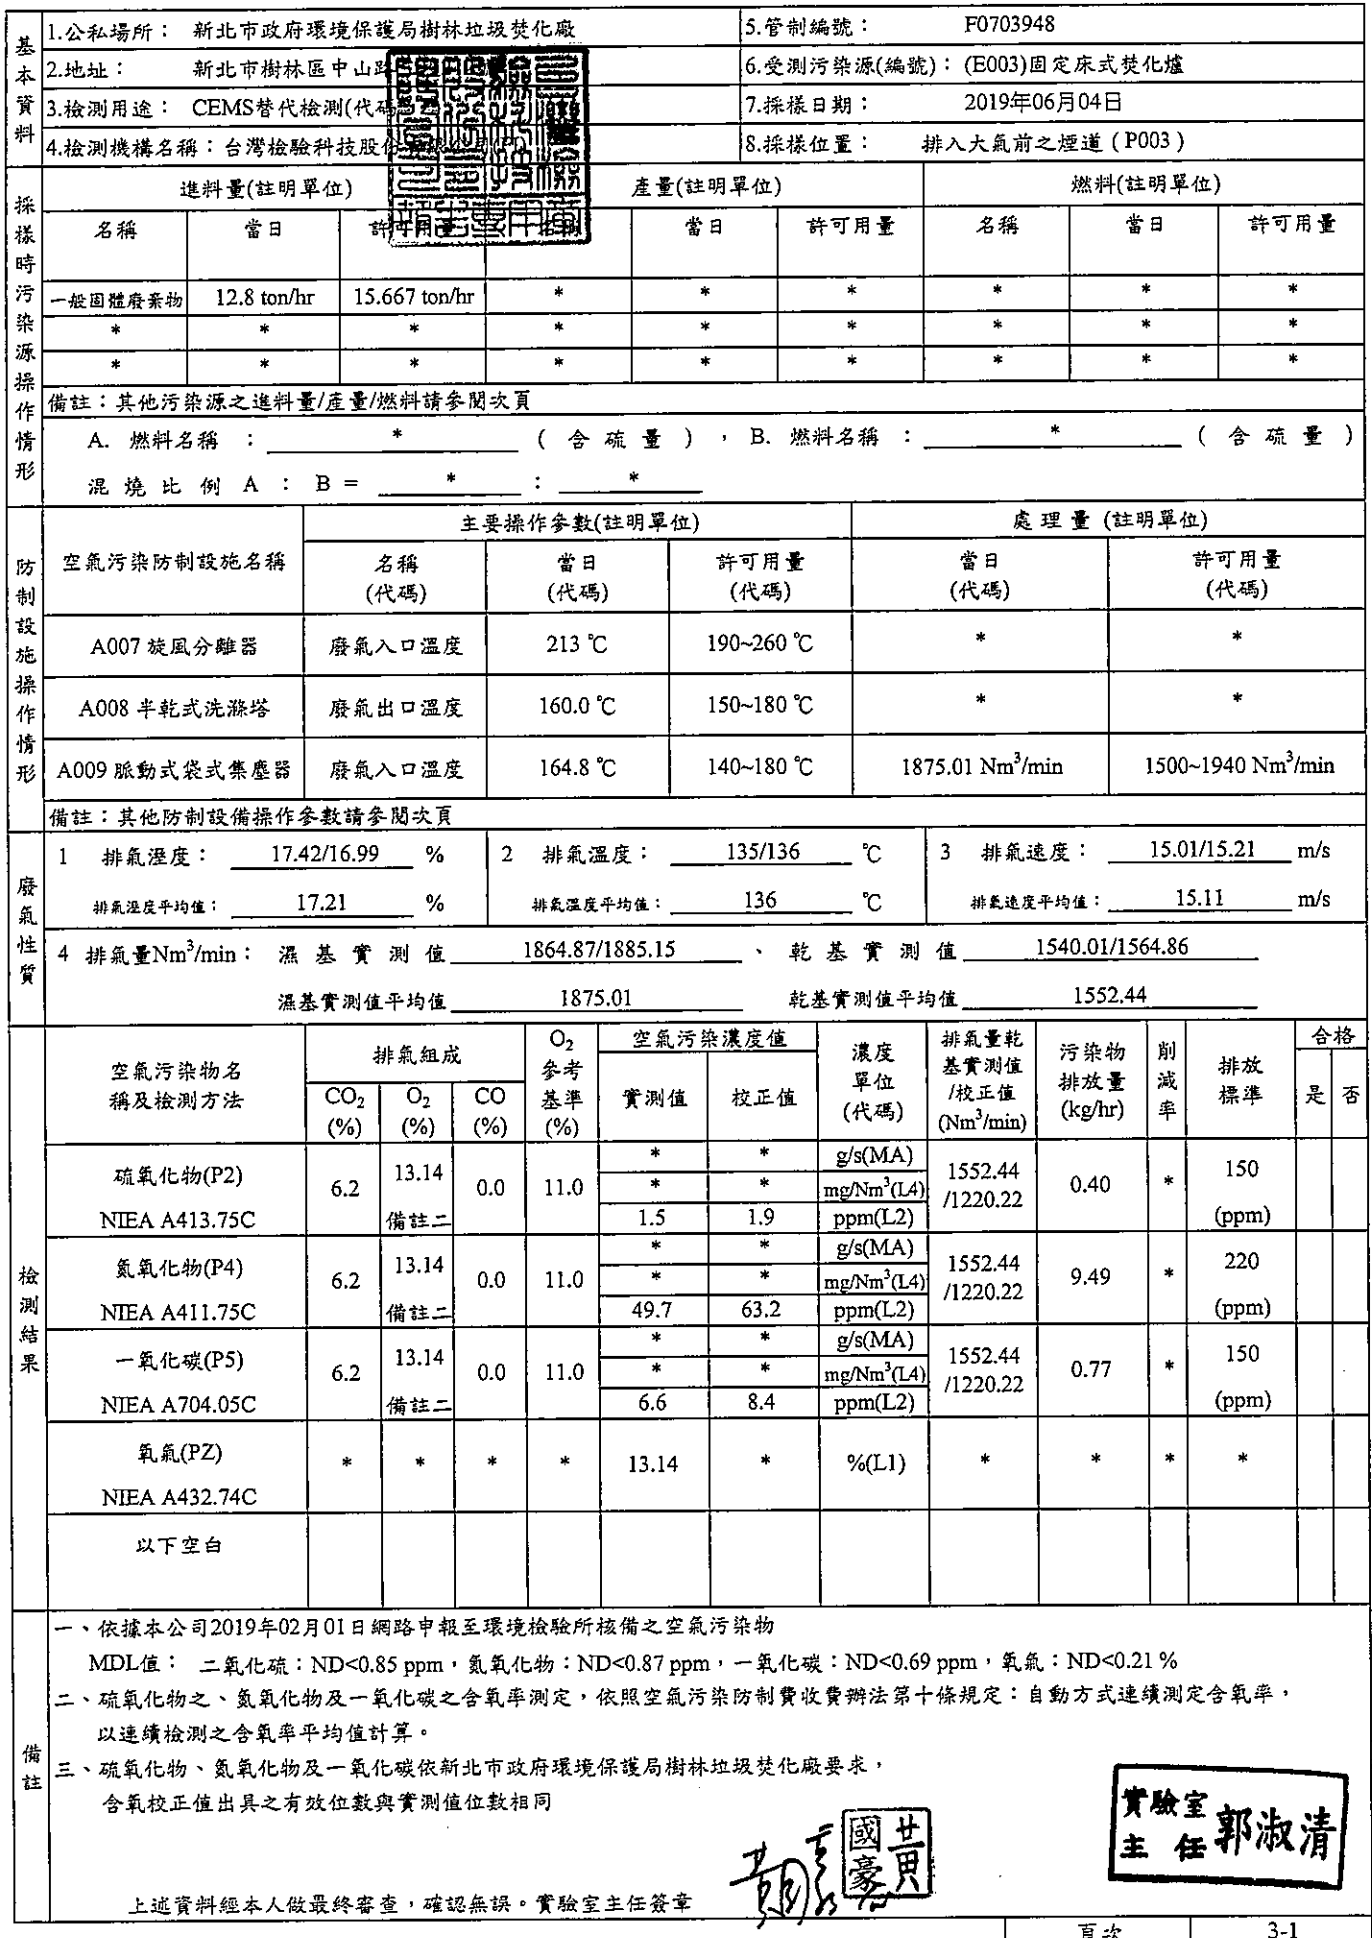 基本資料
1.公私場所： 新北市政府環境保護局樹林垃圾焚化廠 5.管制編號： F0703948
2.地址： 新北市樹林區中山路 6.受測污染源(編號)： (E003)固定床式焚化爐
3.檢測用途： CEMS替代檢測(代碼 7.採樣日期： 2019年06月04日
4.檢測機構名稱：台灣檢驗科技股份 8.採樣位置： 排入大氣前之煙道 ( P003 )
採樣時污染源操作情形
進料量(註明單位) 產量(註明單位) 燃料(註明單位)
名稱 當日 許可用量 名稱 當日 許可用量 名稱 當日 許可用量
一般固體廢棄物 12.8 ton/hr 15.667 ton/hr * * * * * *
* * * * * * * * *
* * * * * * * * *
備註：其他污染源之進料量/產量/燃料請參閱次頁
A. 燃料名稱 ： * ( 含 硫 量 ) ， B. 燃料名稱 ： * ( 含 硫 量 )
混 燒 比 例 A ： B = * ： *
防制設施操作情形
空氣污染防制設施名稱 主要操作參數(註明單位) 處 理 量 (註明單位)
名稱 當日 許可用量 當日 許可用量
(代碼) (代碼) (代碼) (代碼) (代碼)
A007 旋風分離器 廢氣入口溫度 213 ℃ 190~260 ℃ * *
A008 半乾式洗滌塔 廢氣出口溫度 160.0 ℃ 150~180 ℃ * *
A009 脈動式袋式集塵器 廢氣入口溫度 164.8 ℃ 140~180 ℃ 1875.01 Nm³/min 1500~1940 Nm³/min
備註：其他防制設備操作參數請參閱次頁
廢氣性質
1 排氣溼度： 17.42/16.99 % 2 排氣溫度： 135/136 ℃ 3 排氣速度： 15.01/15.21 m/s
排氣溼度平均值： 17.21 % 排氣溫度平均值： 136 ℃ 排氣速度平均值： 15.11 m/s
4 排氣量Nm³/min： 濕 基 實 測 值 1864.87/1885.15 、 乾 基 實 測 值 1540.01/1564.86
濕基實測值平均值 1875.01 乾基實測值平均值 1552.44
檢測結果
空氣污染物名稱及檢測方法 排氣組成 O₂參考基準(%) 空氣污染濃度值 濃度單位(代碼) 排氣量乾基實測值/校正值(Nm³/min) 污染物排放量(kg/hr) 削減率 排放標準 合格
CO₂(%) O₂(%) CO(%) 實測值 校正值 是 否
硫氧化物(P2) NIEA A413.75C 6.2 13.14 備註二 0.0 11.0 * * g/s(MA) 1552.44/1220.22 0.40 * 150 (ppm)
* * mg/Nm³(L4)
1.5 1.9 ppm(L2)
氮氧化物(P4) NIEA A411.75C 6.2 13.14 備註二 0.0 11.0 * * g/s(MA) 1552.44/1220.22 9.49 * 220 (ppm)
* * mg/Nm³(L4)
49.7 63.2 ppm(L2)
一氧化碳(P5) NIEA A704.05C 6.2 13.14 備註二 0.0 11.0 * * g/s(MA) 1552.44/1220.22 0.77 * 150 (ppm)
* * mg/Nm³(L4)
6.6 8.4 ppm(L2)
氧氣(PZ) NIEA A432.74C * * * * 13.14 * %(L1) * * * *
以下空白
備註
一、依據本公司2019年02月01日網路申報至環境檢驗所核備之空氣污染物
MDL值： 二氧化硫：ND<0.85 ppm，氮氧化物：ND<0.87 ppm，一氧化碳：ND<0.69 ppm，氧氣：ND<0.21 %
二、硫氧化物之、氮氧化物及一氧化碳之含氧率測定，依照空氣污染防制費收費辦法第十條規定：自動方式連續測定含氧率，
以連續檢測之含氧率平均值計算。
三、硫氧化物、氮氧化物及一氧化碳依新北市政府環境保護局樹林垃圾焚化廠要求，
含氧校正值出具之有效位數與實測值位數相同
黃國豪
實驗室主任 郭淑清
上述資料經本人做最終審查，確認無誤。實驗室主任簽章
頁次 3-1